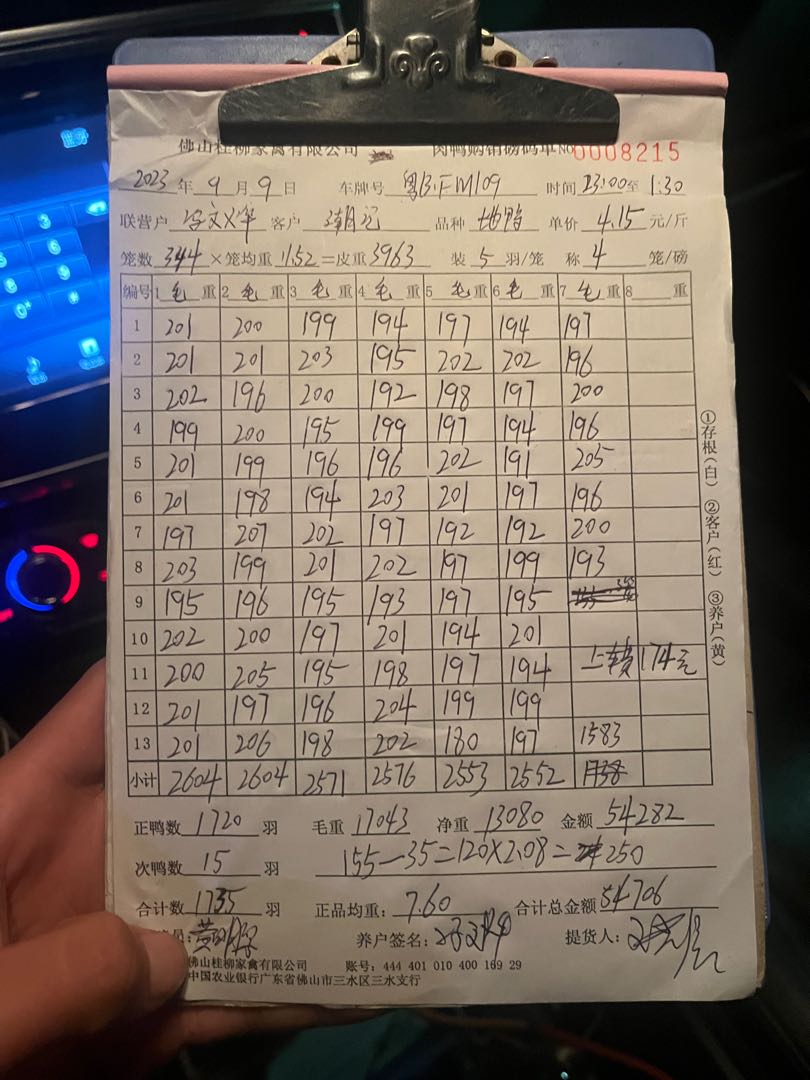 佛山桂柳家禽有限公司 肉鸭购销磅码单 No 0008215
2023年9月9日 车牌号 粤B·FM109 时间 23:00至1:30
联营户 文 客户 潮记 品种 地鸭 单价 4.15 元/斤
笼数 344 ×笼均重 11.52 =皮重 3963 装 5 羽/笼 称 4 笼/磅
编号 1 毛 重 2 毛 重 3 毛 重 4 毛 重 5 毛 重 6 毛 重 7 毛 重 8 重
1 201 200 199 194 197 194 197
2 201 201 203 195 202 202 196
3 202 196 200 192 198 197 200
4 199 200 195 199 197 194 196
5 201 199 196 196 202 191 205
6 201 198 194 203 201 197 196
7 197 207 202 197 192 192 200
8 203 199 201 202 197 199 193
9 195 196 195 193 197 195
10 202 200 197 201 194 201
11 200 205 195 198 197 194 上车费174元
12 201 197 196 204 199 199
13 201 206 198 202 180 197 1583
小计 2604 2604 2571 2576 2553 2552
正鸭数 1720 羽 毛重 17043 净重 13080 金额 54282
次鸭数 15 羽 155-35=120×2.08=250
合计数 1735 羽 正品均重: 7.60 合计总金额 54706
员: 养户签名: 提货人:
佛山桂柳家禽有限公司 账号: 444 401 010 400 169 29
中国农业银行广东省佛山市三水区三水支行
①存根(白) ②客户(红) ③养户(黄)